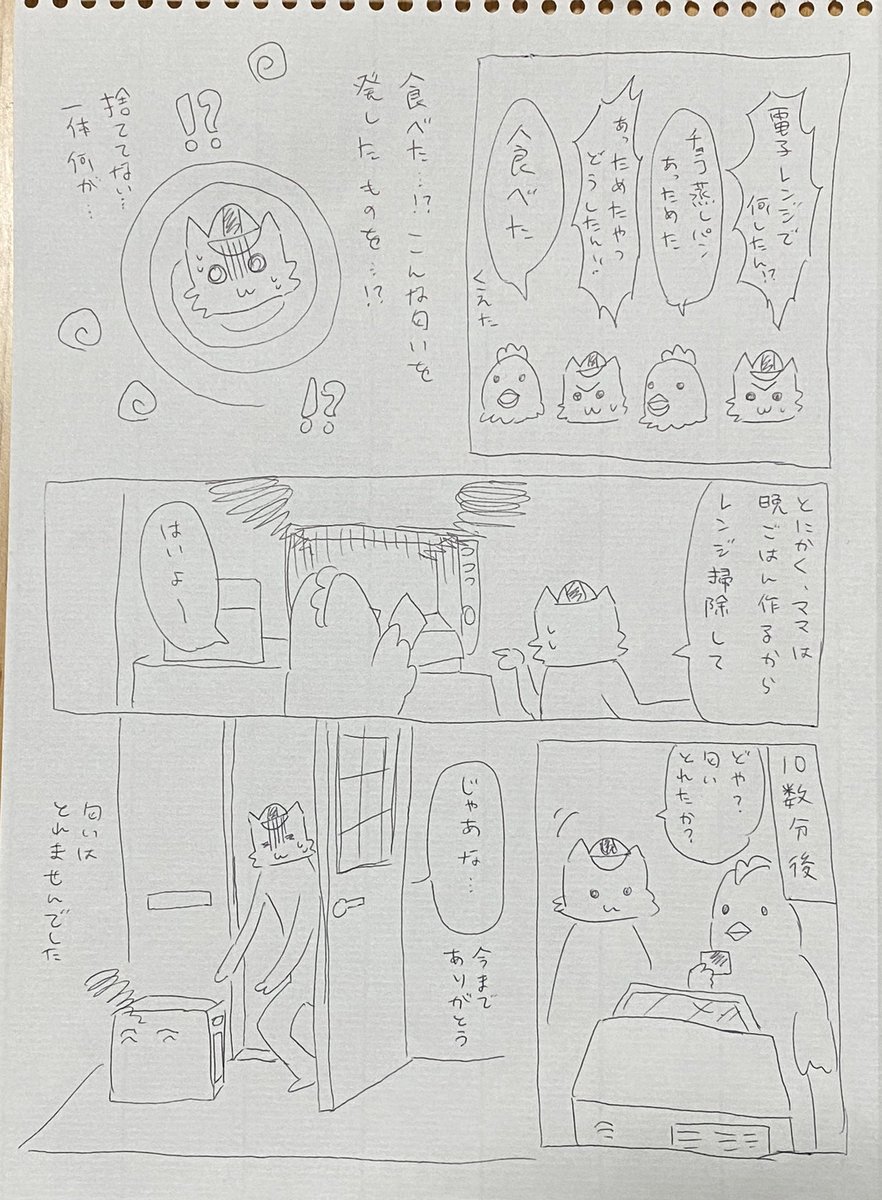 電子レンジで
何したん!?
チョコ蒸しパン
あっためた
あっためたやつ
どうしたん!!
食べた
くえた
食べた…!? こんな匂いを
発したものを…!?
!?
捨ててない…
一体 何が…
!?
とにかく、ママは
晩ごはん作るから
レンジ掃除して
つつっ
はいよ〜
10数分後
どや?
匂い
とれたか?
じゃあな…
今まで
ありがとう
匂いは
とれませんでした